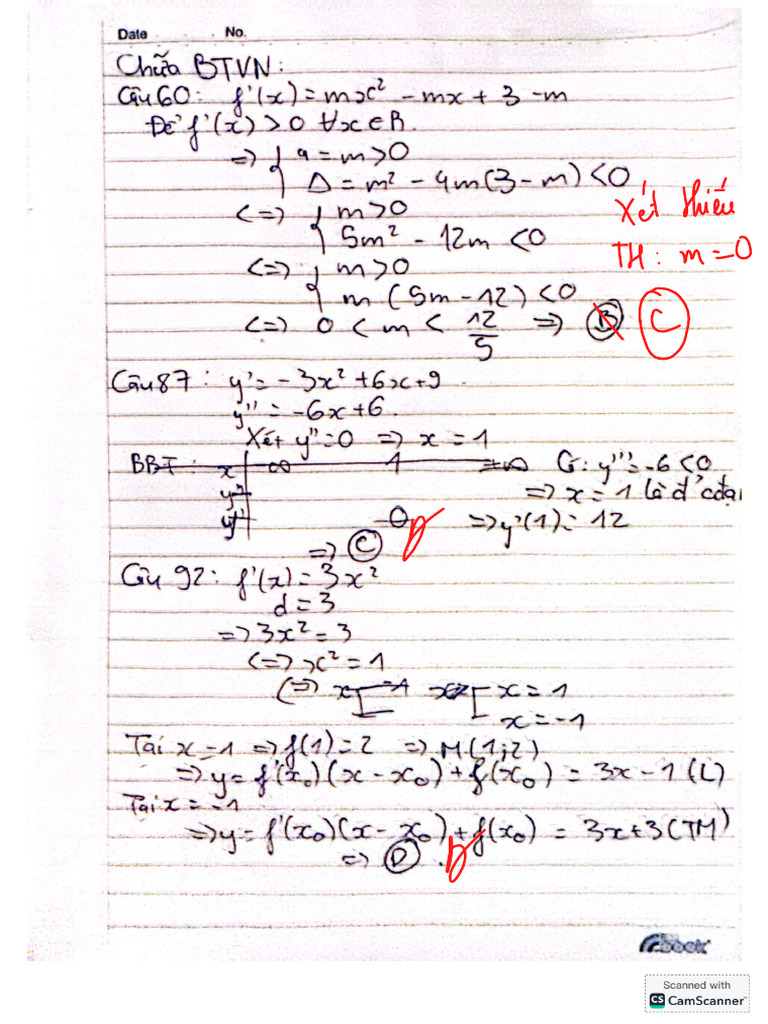 Date No.
Chữa BTVN:
Câu 60: f'(x) = mx² - mx + 3 - m
Để f'(x) > 0 ∀x ∈ R.
=> { a = m > 0
Δ = m² - 4m(3 - m) < 0
Xét thiếu
TH: m = 0
<=> { m > 0
5m² - 12m < 0
<=> { m > 0
m (5m - 12) < 0
<=> 0 < m < 12/5 => B C
Câu 87: y' = -3x² + 6x + 9
y'' = -6x + 6.
Xét y'' = 0 => x = 1
BBT: x -∞ 1 +∞ y''' = -6 < 0
=> x = 1 là đ' cđại
0 => y'(1) = 12
=> C
Câu 92: f'(x) = 3x²
d = 3
=> 3x² = 3
<=> x² = 1
<=> [ x = 1
x = -1
Tại x = 1 => f(1) = 2 => M(1;2)
=> y = f'(x₀)(x - x₀) + f(x₀) = 3x - 1 (L)
Tại x = -1
=> y = f'(x₀)(x - x₀) + f(x₀) = 3x + 3 (TM)
=> D.
book
Scanned with
CS CamScanner